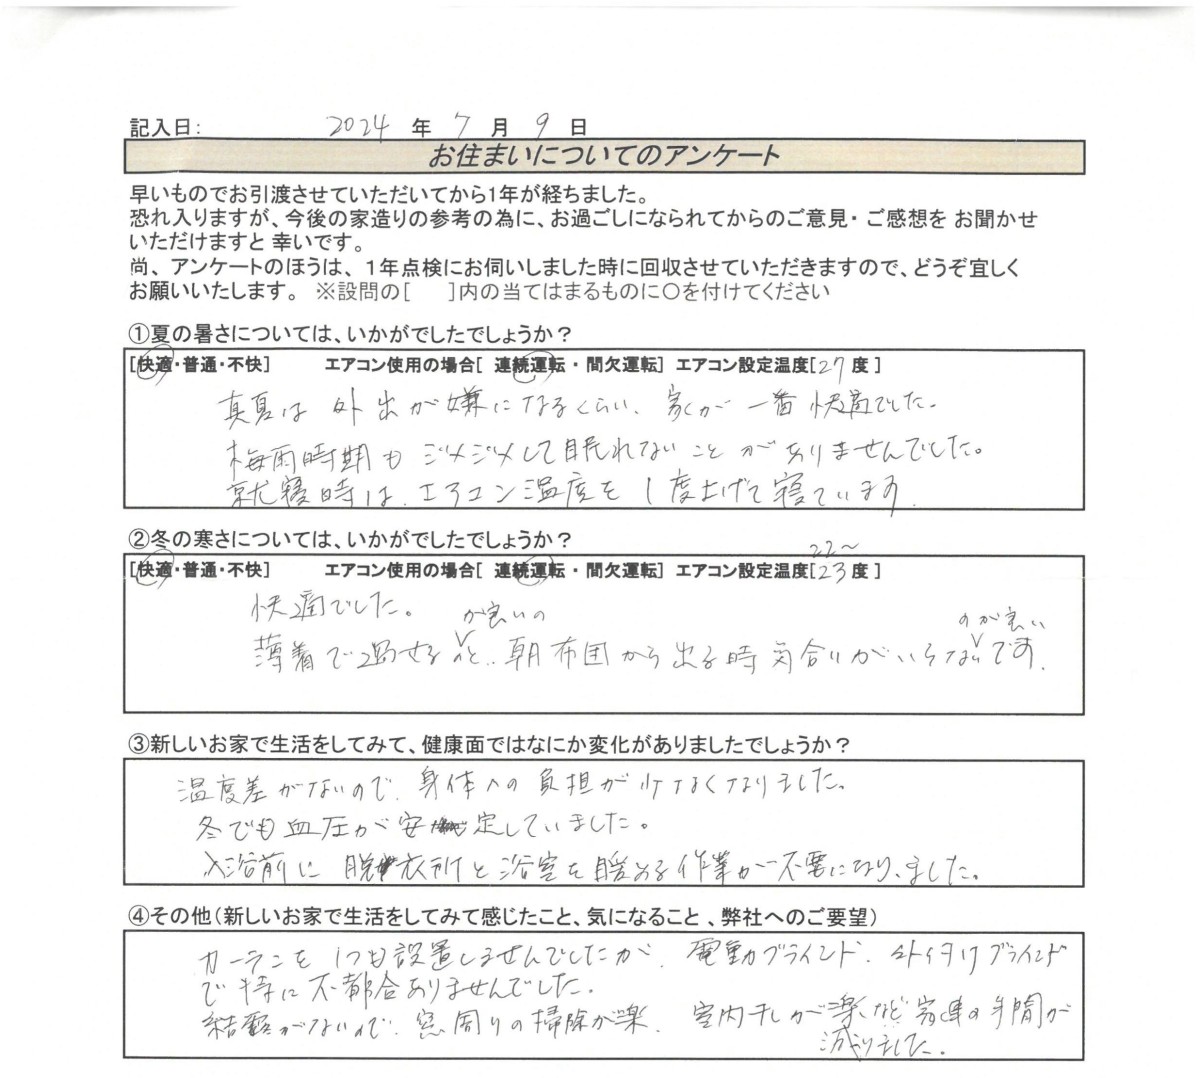 記入日: 2024 年 7 月 9 日
お住まいについてのアンケート
早いものでお引渡させていただいてから1年が経ちました。
恐れ入りますが、今後の家造りの参考の為に、お過ごしになられてからのご意見・ご感想を お聞かせ
いただけますと 幸いです。
尚、アンケートのほうは、1年点検にお伺いしました時に回収させていただきますので、どうぞ宜しく
お願いいたします。 ※設問の[　　]内の当てはまるものに○を付けてください
①夏の暑さについては、いかがでしたでしょうか？
[快適・普通・不快] エアコン使用の場合[ 連続運転 ・ 間欠運転] エアコン設定温度[27 度 ]
真夏は 外出が嫌になるくらい、家が一番快適でした。
梅雨時期も ジメジメして眠れないことがありませんでした。
就寝時は、エアコン温度を 1度上げて寝ています。
②冬の寒さについては、いかがでしたでしょうか？
22～
[快適・普通・不快] エアコン使用の場合[ 連続運転 ・ 間欠運転] エアコン設定温度[23 度 ]
快適でした。
薄着で過せるが良いのと、朝布団から出る時気合いがいらないのが良いです。
③新しいお家で生活をしてみて、健康面ではなにか変化がありましたでしょうか？
温度差がないので、身体への負担が少なくなりました。
冬でも血圧が安定していました。
入浴前に 脱衣所と浴室を暖める作業が不要になりました。
④その他(新しいお家で生活をしてみて感じたこと、気になること 、弊社へのご要望)
カーテンを 1つも設置しませんでしたが、電動ブラインド、外付けブラインド
で特に不都合ありませんでした。
結露がないので、窓周りの掃除が楽、室内干しが楽など家事の手間が
減りました。